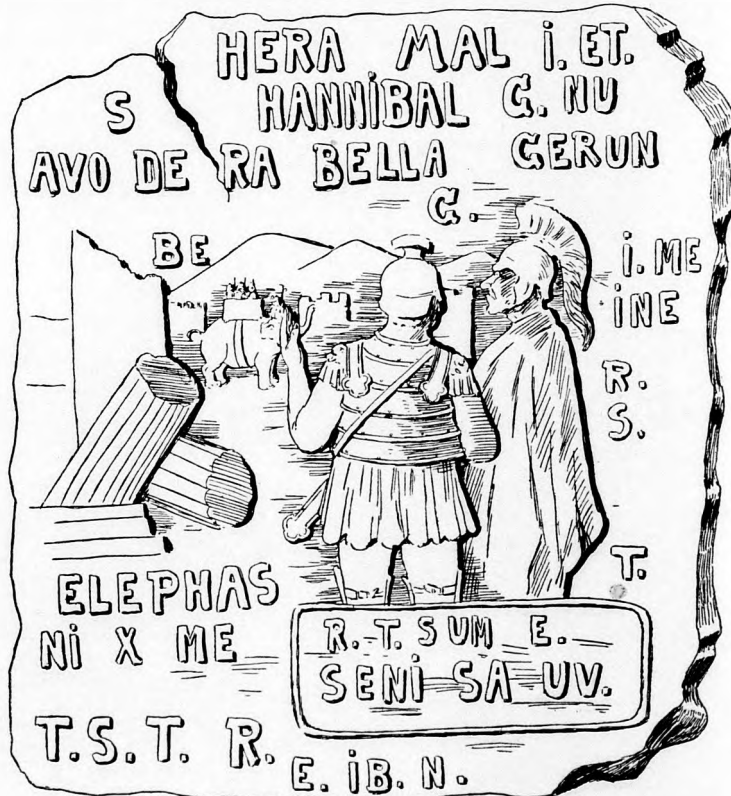 HERA MAL i. ET.
S HANNiBAL C. NU
AVO DE RA BELLA GERUN
C.
BE
i. ME
iNE
R.
S.
T.
ELEPHAS
Ni X ME
R. T. SUM E.
SENi SA UV.
T. S. T. R.
E. iB. N.